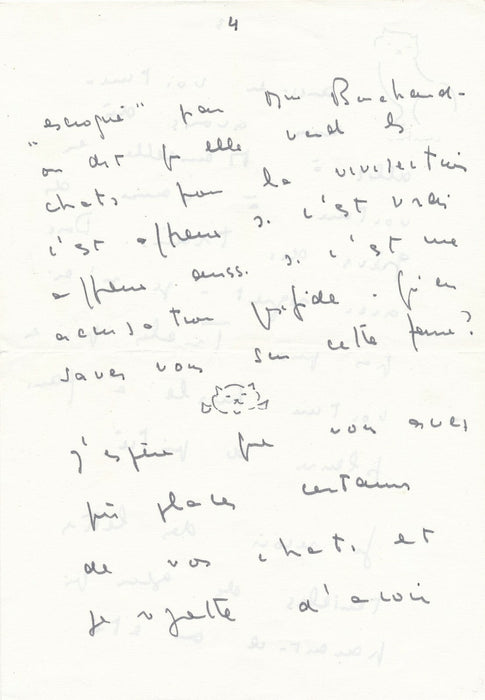 4
"escroqué" par Mme Banchard -
on dit qu'elle vend les
chats pour la vivisection
c'est affreux si c'est vrai
affreux aussi si c'est une
accusation perfide. Qu'en
savez vous sur cette femme?
j'espère que vous avez
pu placer certains
de vos chats et
je regrette d'avoir